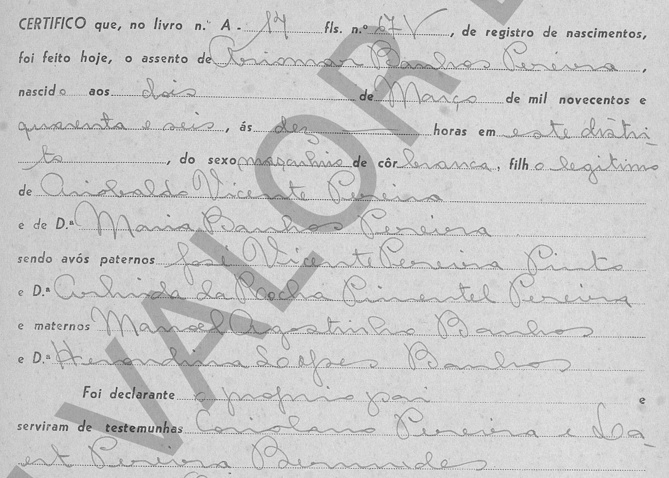 CERTIFICO que, no livro n.º A - 17 fls. n.º 67 V, de registro de nascimentos,
foi feito hoje, o assento de Banhos Pereira,
nascido aos dois de Março de mil novecentos e
quarenta e seis, ás dez horas em este distri-
to, do sexo masculino de côr branca, filho legitimo
de Vicente Pereira
e de D.ª Maria Banhos Pereira
sendo avós paternos José Vicente Pereira Pinto
e D.ª da Rocha Pimentel Pereira
e maternos Manoel Agostinho Banhos
e D.ª Lopes Banhos
Foi declarante o proprio pai e
serviram de testemunhas Coriolano Pereira e La-
Pereira Bermudes
VALOR